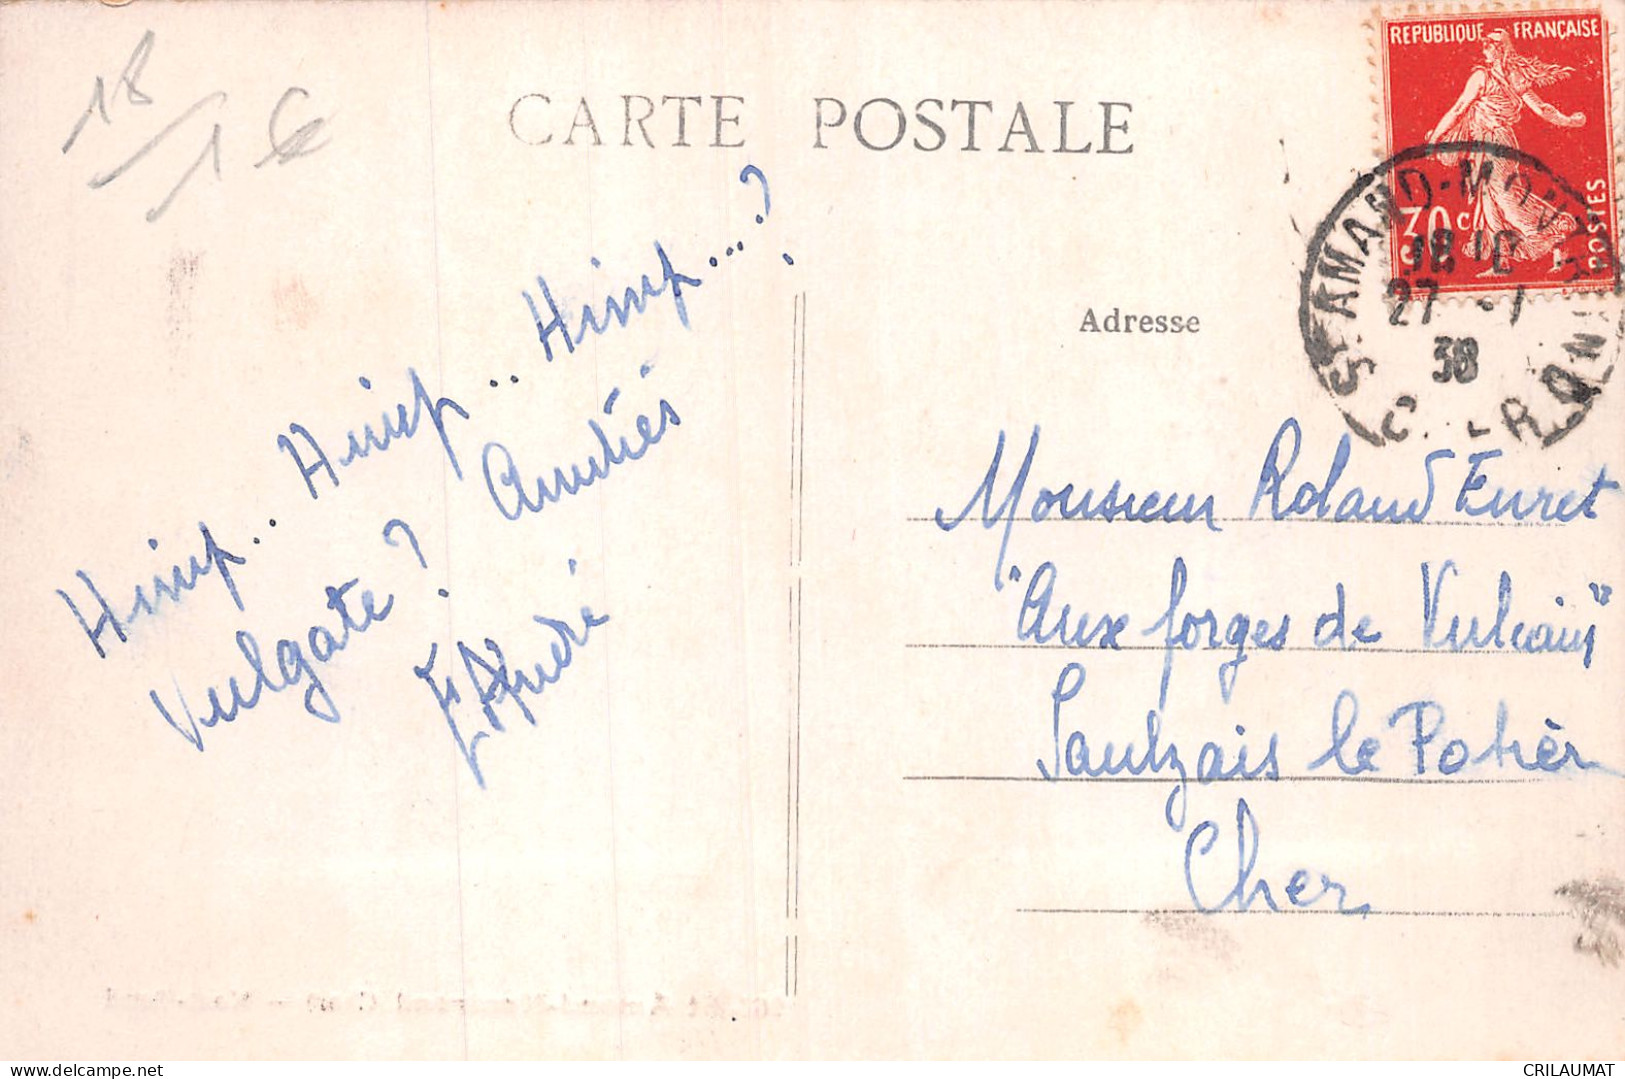 18
16
CARTE POSTALE
REPUBLIQUE FRANÇAISE
30 c
POSTES
ST AMAND-MONTROND
18 10
27 -1
38
CHER
Himp.. Himp.. Himp...?
Vulgate? Amitiés
André
Adresse
Monsieur Roland Euret
"Aux forges de Vulcain"
Saulzais le Potier
Cher
delcampe.net
CRILAUMAT